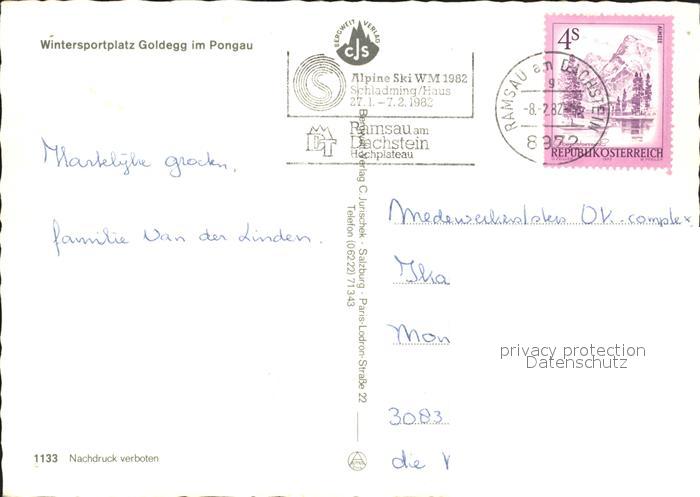 Wintersportplatz Goldegg im Pongau
BERGWELT VERLAG
CJS
Alpine Ski WM 1982
Schladming/Haus
27.1. – 7.2.1982
Ramsau am
Dachstein
Hochplateau
RAMSAU am DACHSTEIN
-8.-2.82
8972
4S
ALMSEE
REPUBLIK ÖSTERREICH
Hartelijke groeten,
familie Van der Linden.
Bergwelt Verlag C. Jurischek - Salzburg - Paris-Lodron-Straße 22
Telefon (06222) 71343
OK. complex
Ika
Mon
3083
die V
privacy protection
Datenschutz
1133 Nachdruck verboten